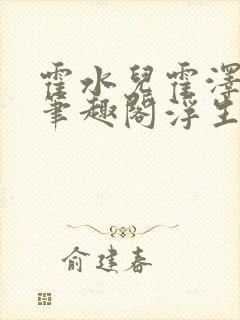 霍水兒霍澤
筆趣閣浮生
俞建春